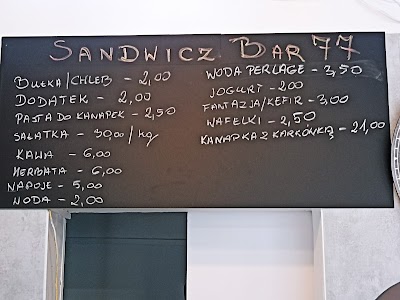 SANDWICZ BAR 77
BUŁKA/CHLEB - 2,00
DODATEK - 2,00
PASTA DO KANAPEK - 2,50
SAŁATKA - 30,00/kg
KAWA - 6,00
HERBATA - 6,00
NAPOJE - 5,00
WODA - 2,00
WODA PERLAGE - 3,50
JOGURT - 200
FANTAZJA/KEFIR - 3,00
WAFELKI - 2,50
KANAPKA Z KARKÓWKĄ = 21,00